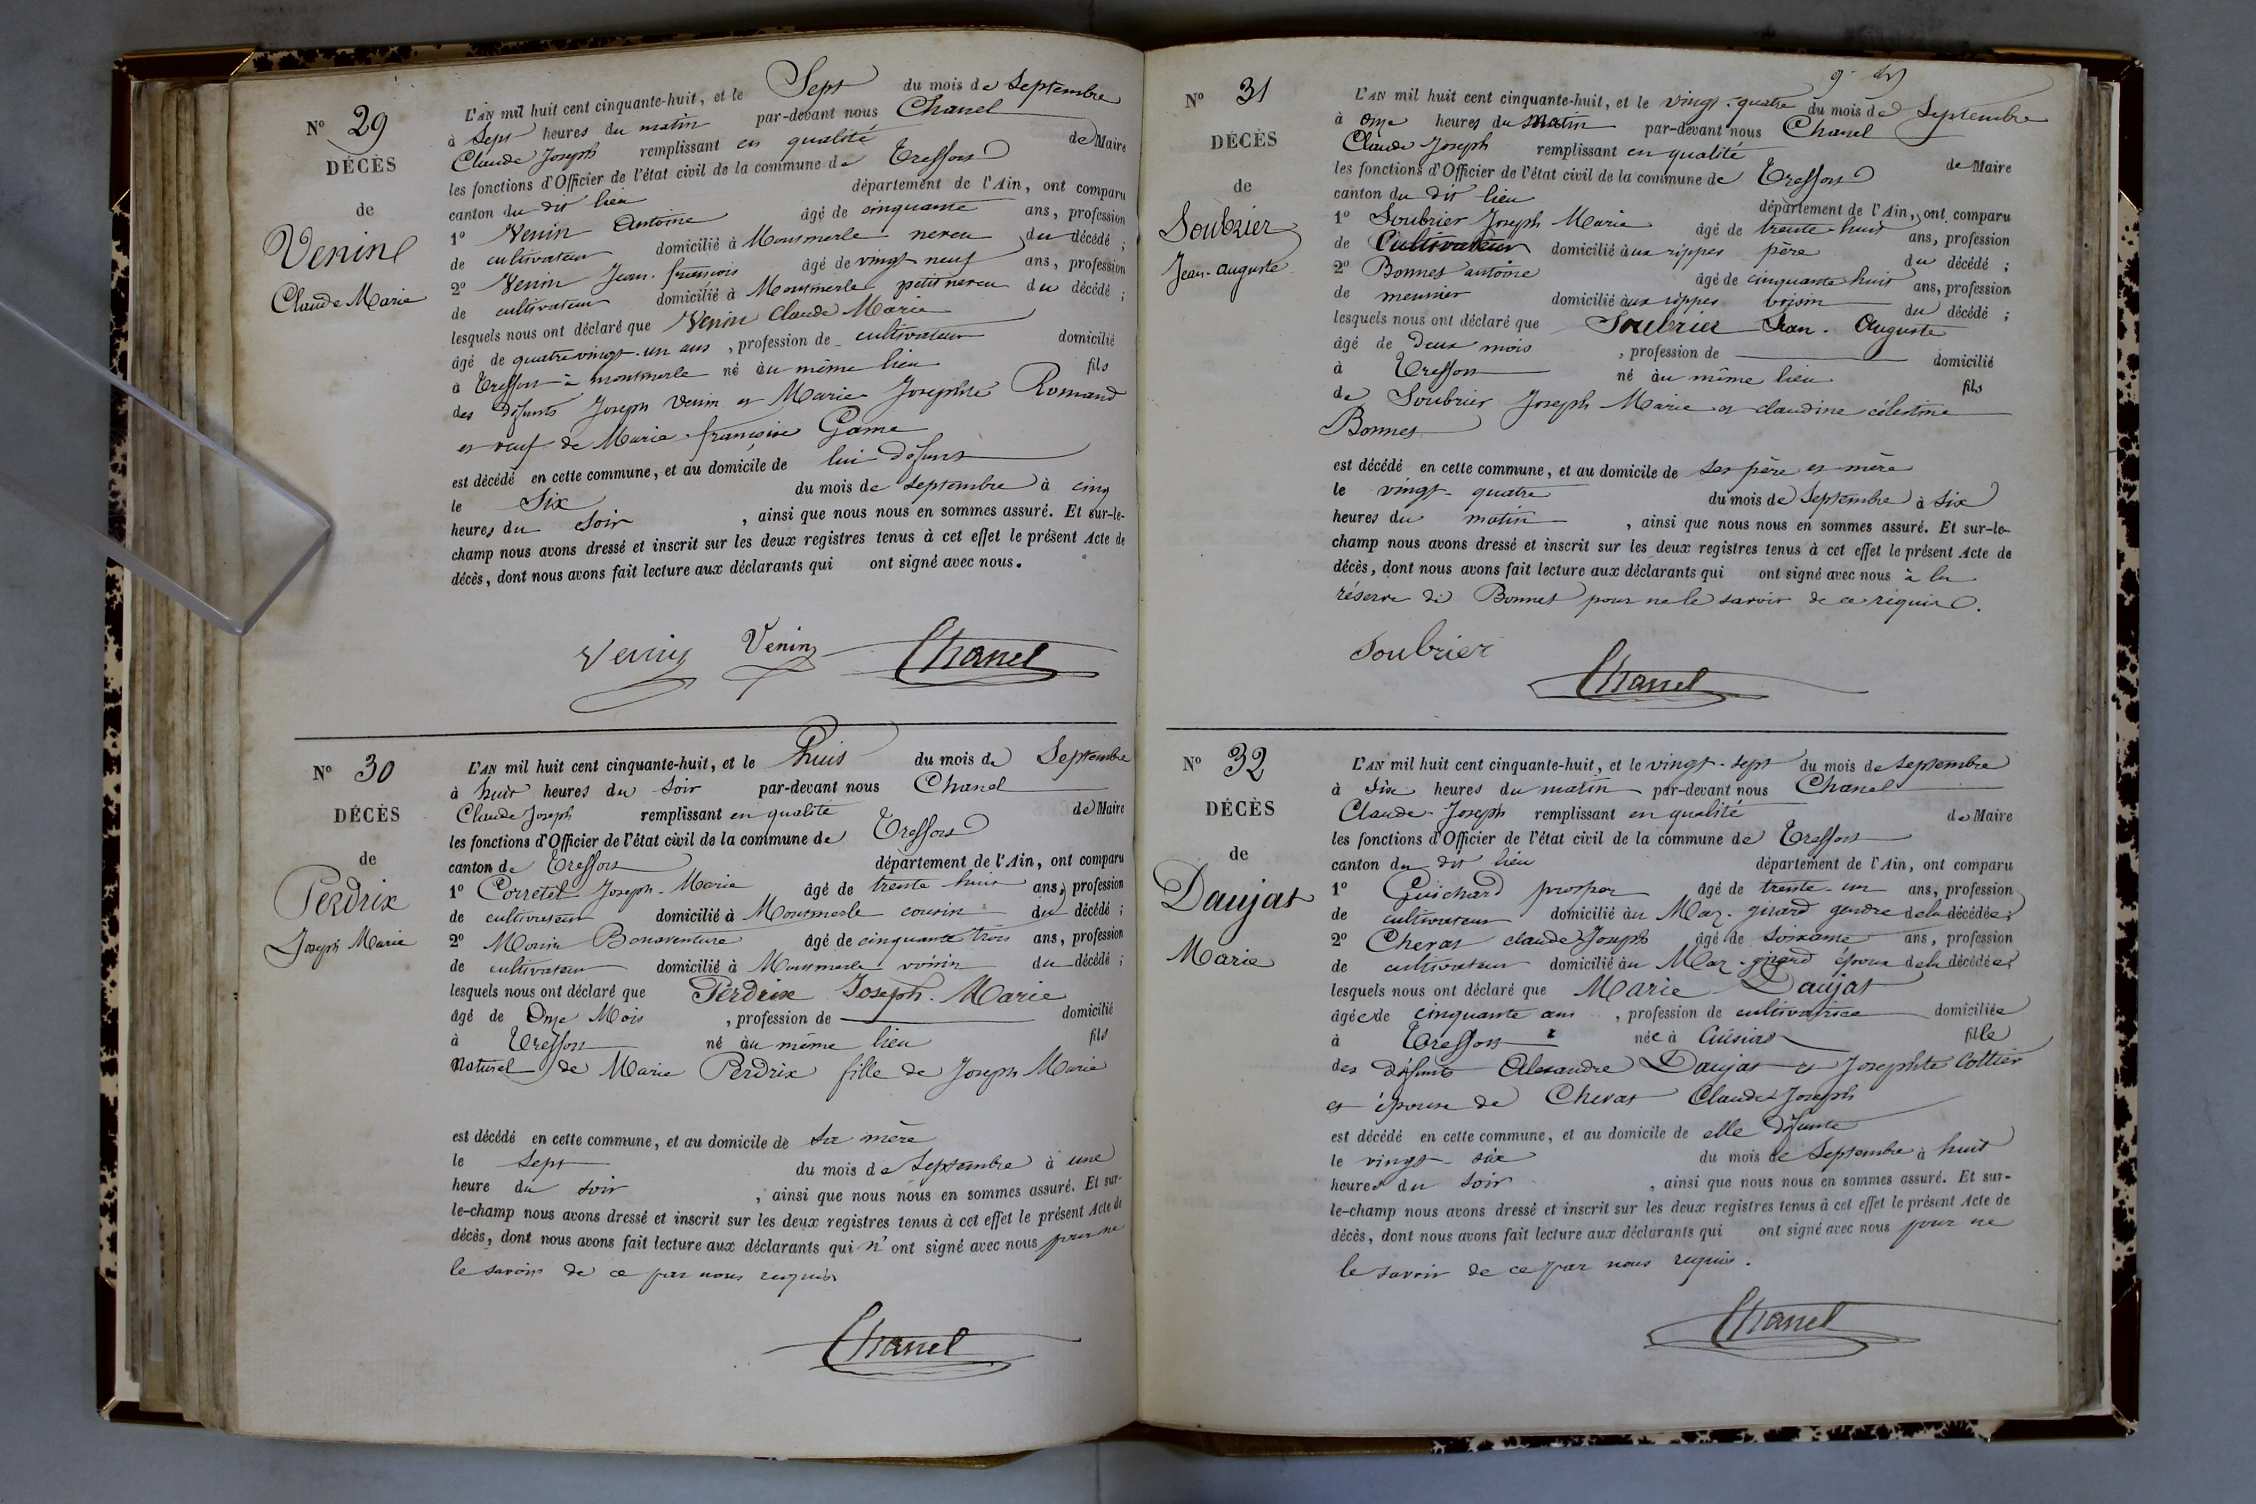 N° 29
DÉCÈS
de
Venin
Claude Marie
L'AN mil huit cent cinquante-huit, et le Sept du mois de Septembre
à Sept heures du matin par-devant nous Chanel
Claude Joseph remplissant en qualité de Maire
les fonctions d'Officier de l'état civil de la commune de Treffort
canton du dit lieu département de l'Ain, ont comparu
1° Venin Antoine âgé de cinquante ans, profession
de cultivateur domicilié à Montmerle neveu du décédé ;
2° Venin Jean-françois âgé de vingt neuf ans, profession
de cultivateur domicilié à Montmerle petit neveu du décédé ;
lesquels nous ont déclaré que Venin Claude Marie
âgé de quatre vingt-un ans , profession de cultivateur domicilié
à Treffort à montmerle né au même lieu fils
des défunts Joseph Venin et Marie Josephte Romand
et veuf de Marie-françoise Game
est décédé en cette commune, et au domicile de lui défunt
le Six du mois de Septembre à cinq
heures du Soir , ainsi que nous nous en sommes assuré. Et sur-le-
champ nous avons dressé et inscrit sur les deux registres tenus à cet effet le présent Acte de
décès, dont nous avons fait lecture aux déclarants qui ont signé avec nous.
Venin Venin Chanel
N° 30
DÉCÈS
de
Perdrix
Joseph Marie
L'AN mil huit cent cinquante-huit, et le huit du mois de Septembre
à huit heures du soir par-devant nous Chanel
Claude Joseph remplissant en qualité de Maire
les fonctions d'Officier de l'état civil de la commune de Treffort
canton de Treffort département de l'Ain, ont comparu
1° Corretel Joseph-Marie âgé de trente huit ans, profession
de cultivateur domicilié à Montmerle cousin du décédé ;
2° Monin Bonaventure âgé de cinquante trois ans, profession
de cultivateur domicilié à Montmerle voisin du décédé ;
lesquels nous ont déclaré que Perdrix Joseph-Marie
âgé de Onze Mois , profession de domicilié
à Treffort né au même lieu fils
Naturel de Marie Perdrix fille de Joseph Marie
est décédé en cette commune, et au domicile de Sa mère
le Sept du mois de Septembre à une
heure du soir , ainsi que nous nous en sommes assuré. Et sur-
le-champ nous avons dressé et inscrit sur les deux registres tenus à cet effet le présent Acte de
décès, dont nous avons fait lecture aux déclarants qui n'ont signé avec nous pour ne
le savoir de ce par nous requis
Chanel
N° 31
DÉCÈS
de
Soubrier
Jean-Auguste
L'AN mil huit cent cinquante-huit, et le vingt-quatre du mois de Septembre
à onze heures du matin par-devant nous Chanel
Claude Joseph remplissant en qualité de Maire
les fonctions d'Officier de l'état civil de la commune de Treffort
canton du dit lieu département de l'Ain, ont comparu
1° Soubrier Joseph Marie âgé de trente-huit ans, profession
de Cultivateur domicilié aux rippes père du décédé ;
2° Bonnet antoine âgé de cinquante huit ans, profession
de meunier domicilié aux rippes voisin du décédé ;
lesquels nous ont déclaré que Soubrier Jean-Auguste
âgé de Deux mois , profession de domicilié
à Treffort né au même lieu fils
de Soubrier Joseph Marie et claudine célestine
Bonnet
est décédé en cette commune, et au domicile de ses père et mère
le vingt-quatre du mois de Septembre à Six
heures du matin , ainsi que nous nous en sommes assuré. Et sur-le-
champ nous avons dressé et inscrit sur les deux registres tenus à cet effet le présent Acte de
décès, dont nous avons fait lecture aux déclarants qui ont signé avec nous à la
réserve de Bonnet pour ne le savoir de ce requis.
Soubrier
Chanel
N° 32
DÉCÈS
de
Daujat
Marie
L'AN mil huit cent cinquante-huit, et le vingt-sept du mois de Septembre
à Six heures du matin par-devant nous Chanel
Claude-Joseph remplissant en qualité de Maire
les fonctions d'Officier de l'état civil de la commune de Treffort
canton du dit lieu département de l'Ain, ont comparu
1° Guichard prosper âgé de trente-un ans, profession
de cultivateur domicilié au Maz-girard gendre de la décédée ;
2° Chevat claude Joseph âgé de soixante ans, profession
de cultivateur domicilié au Maz-girard époux de la décédée
lesquels nous ont déclaré que Marie Daujat
âgée de cinquante ans , profession de cultivatrice domiciliée
à Treffort née à Cuisiat fille
des défunts Alexandre Daujat et Josephte Cottier
et épouse de Chevat Claude Joseph
est décédé en cette commune, et au domicile de elle défunte
le vingt-six du mois de Septembre à huit
heures du Soir , ainsi que nous nous en sommes assuré. Et sur-
le-champ nous avons dressé et inscrit sur les deux registres tenus à cet effet le présent Acte de
décès, dont nous avons fait lecture aux déclarants qui ont signé avec nous pour ne
le savoir de ce par nous requis.
Chanel